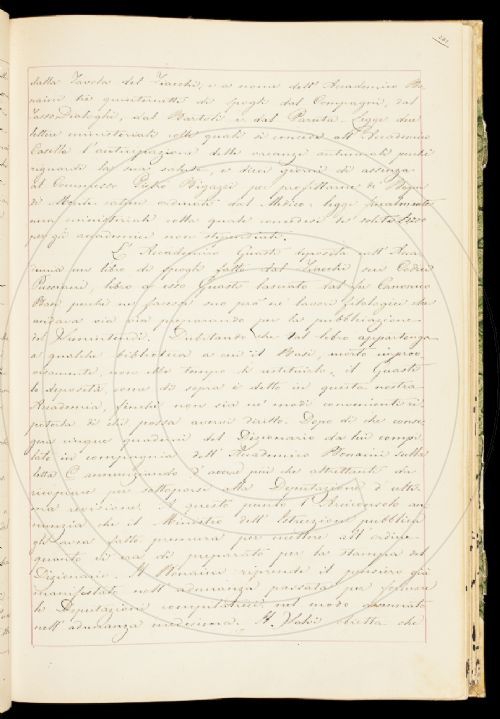 dalla Tavola del Zucchi, e a nome dell'Accademico Bo-
naini tre quinternetti di spogli dal Compagni, dal
Tasso Dialoghi, dal Bartoli e dal Paruta. Legge due
lettere ministeriali colle quali si concede all'Accademico
Casella l'anticipazione delle vacanze autunnali perché
riguardi la sua salute, e dieci giorni di assenza
al Commesso Pietro Bigazzi per profittarne de' Bagni
di Monte catini ordinati dal Medico. Legge finalmente
una ministeriale colla quale concedesi le solite £200
per gli accademici non stipendiati.
L'Accademico Guasti deposita nell'Acca-
demia un libro di spogli fatto dal Zucchi su Codici
Pucciani, libro a esso Guasti lasciato dal fu Canonico
Basi perché ne facesse uso pra' ne' lavori filologici che
andava via via preparando per la pubblicazione
de' Documenti. Dubitando che tal libro appartenga
a qualche biblioteca a cui il Basi, morto improv-
visamente, non ebbe tempo di restituirlo, il Guasti
lo deposita, come di sopra è detto in questa nostra
Accademia, finché non sia ne' modi convenienti ri-
petuto da chi possa averne diritto. Dopo di che conse-
gna cinque quaderni del Dizionario da lui compi-
lato in compagnia dell'Accademico Bonaini sulla
lettera C annunziando d'averne più che altrettanti da
ricopiare per sottoporsi alla Deputazione d'ulti-
ma revisione. A questo punto l'Arciconsolo an-
nunzia che il Ministro dell'Istruzione pubblica
gli aveva fatto premura per mettere all'ordine
quanto si era di preparato per la stampa del
Dizionario. Il Bonaini riprende il pensiero già
manifestato nell'adunanza passata per formare
le Deputazione compilatrici nel modo
nell'adunanza medesima. Il che